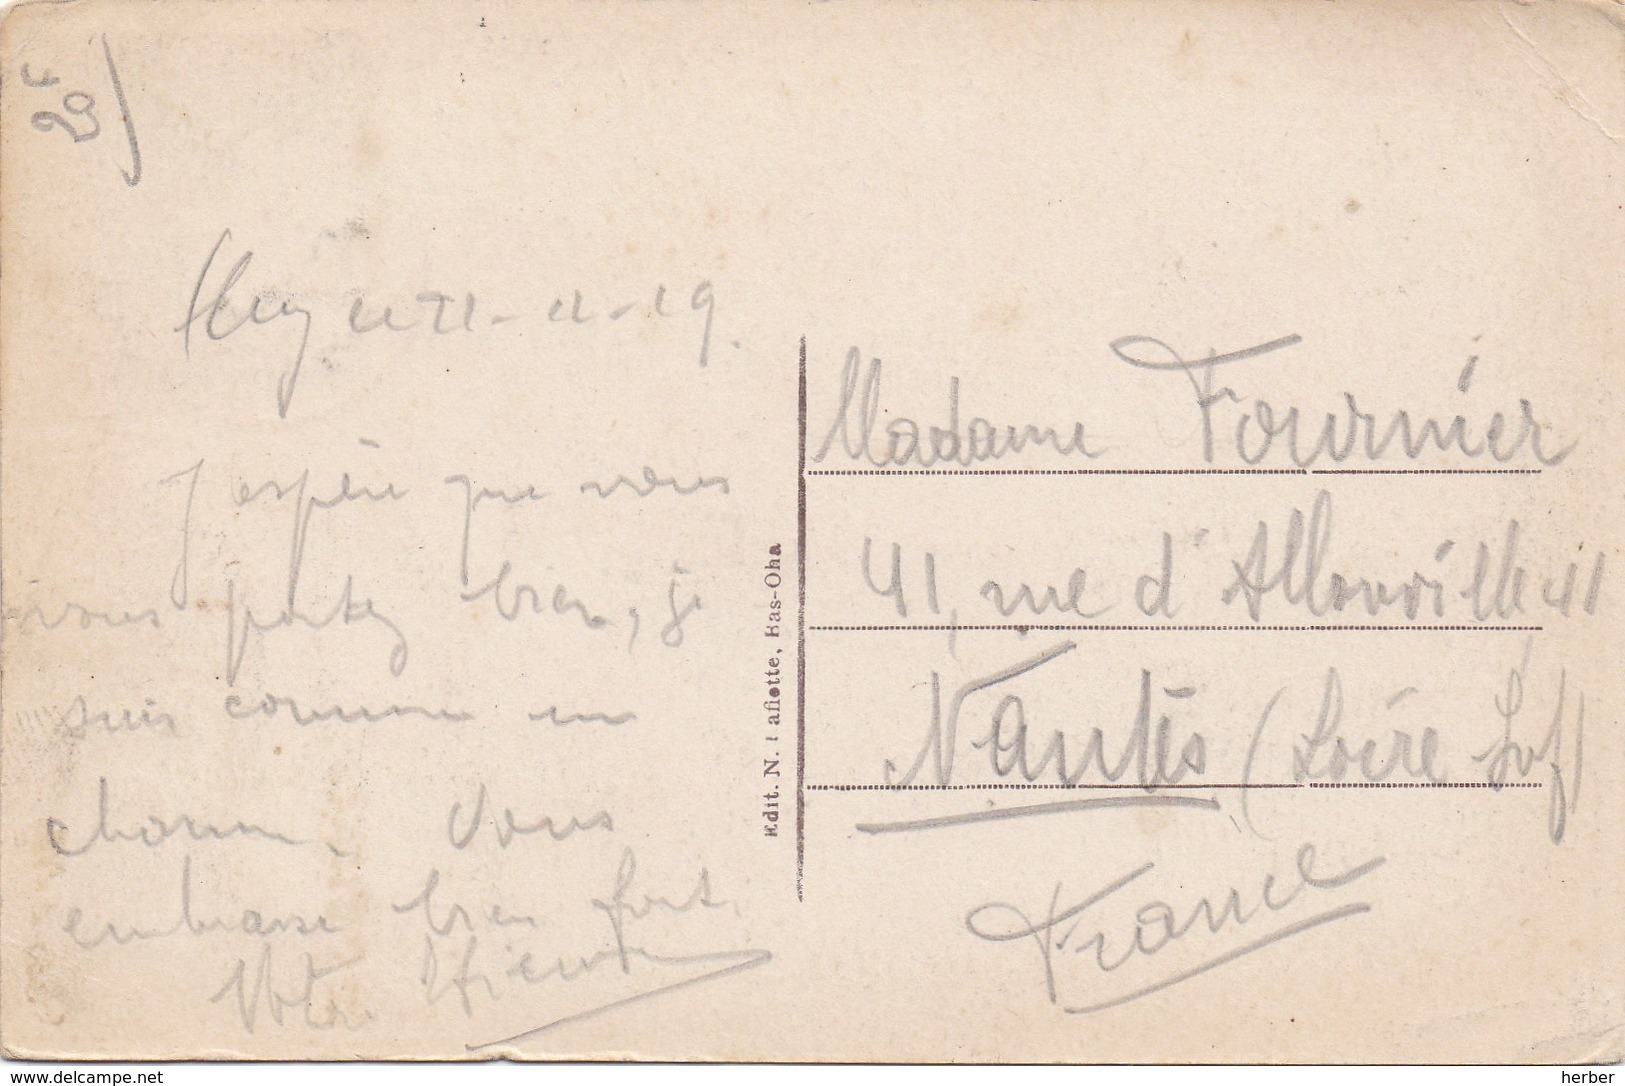 20F
Huy le 21-11-19.
J'espère que vous
vous portez bien, je
suis comme un
charme. Vous
embrasse bien fort.
Votre Etienne
Edit. N. Lafiotte, Bas-Oha
Madame Fournier
41, rue d'Allonville 41
Nantes (Loire Inf)
France
www.delcampe.net
herber